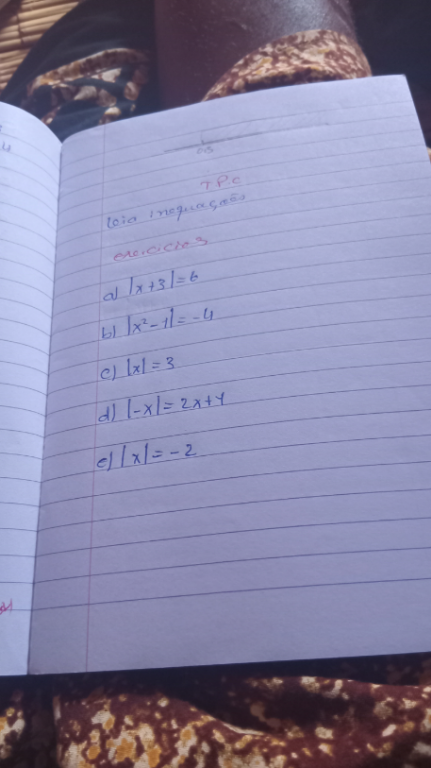 TPC
Leia inequações
exercicios
a) |x+3|=6
b) |x²-1|=-4
c) |x|=3
d) |-x|=2x+4
e) |x|=-2